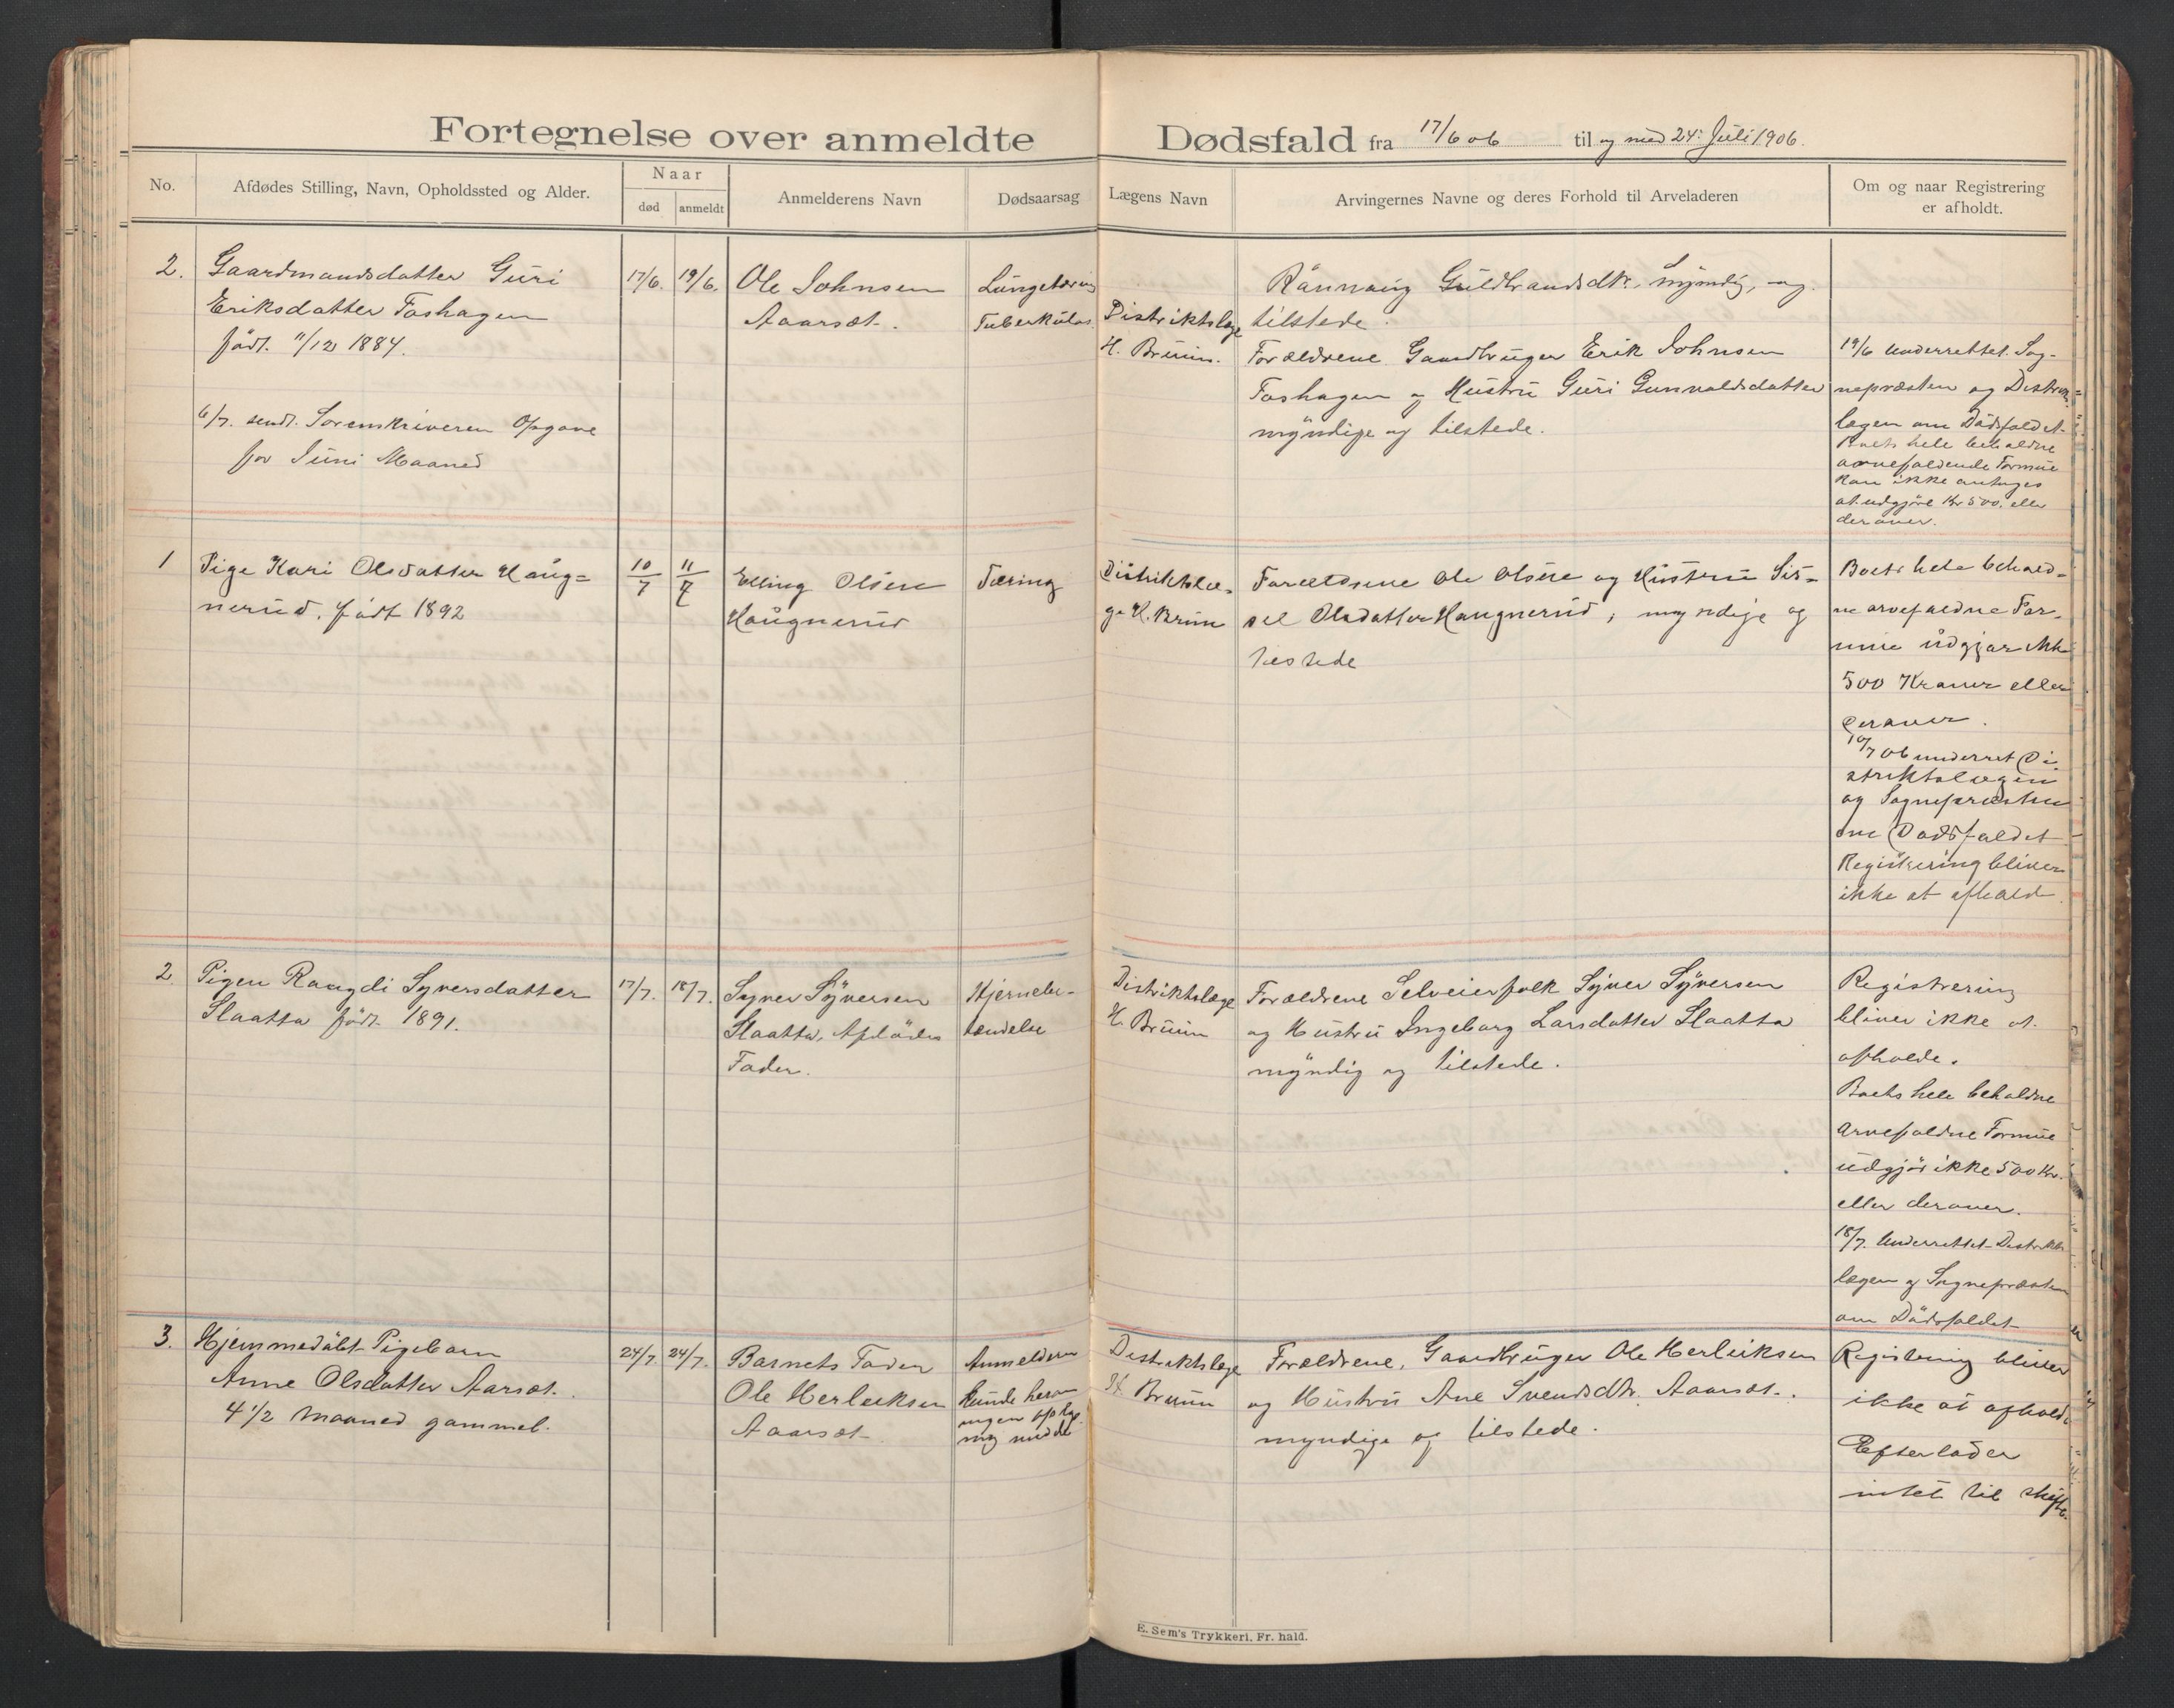 Fortegnelse over anmeldte Dødsfald fra 17/6 06 til og med 24: Juli 1906.
No.
Afdødes Stilling, Navn, Opholdssted og Alder.
Naar
død
anmeldt
Anmelderens Navn
Dødsaarsag
Lægens Navn
Arvingernes Navne og deres Forhold til Arveladeren
Om og naar Registrering
er afholdt.
2.
Gaardmandsdatter Guri
Eriksdatter Foshagen
født. 11/12 1884.
6/7. sendt. Sorenskriveren Opgave
for Juni Maaned
17/6.
19/6.
Ole Johnsen
Aarsæt.
Lungetæring
Tuberkulos.
Distriktslæge
H. Bruun.
Rønnaug Guldbrandsdtr. myndig, og
tilstede.
Forældrene Gaardbruger Erik Johnsen
Foshagen og Hustru Guri Gunvaldsdatter
myndige og tilstede.
19/6 Underrettet Sog-
nepræsten og Distrikts-
lægen om Dødsfaldet.
Boets hele beholdne
arvefaldende Formue
kan ikke antages
at udgjøre Kr 500. eller
derover.
1
Pige Kari Olsdatter Haug=
nerud. født 1892
10/7
11/7
Elling Olsen
Haugnerud
Tæring
Distriktslæ=
ge H. Bruun
Forældrene Ole Olsen og Hustru Sis=
sel Olsdatter Haugnerud, myndige og
tilstede
Boets hele behold=
ne arvefaldne For-
mue udgjør ikke
500 Kroner eller
derover.
10/7 06 underret Di
striktslægen
og Sognepræsten
om Dødsfaldet
Registrering bliver
ikke at afholde
2
Pigen Raagdi Syversdatter
Slaatta født. 1891.
17/7.
18/7.
Syver Syversen
Slaatta, Afdødes
Fader.
Hjernebe-
tændelse
Distriktslæge
H. Bruun
Forældrene Selveierfolk Syver Syversen
og Hustru Ingeborg Larsdatter Slaatta
myndig og tilstede.
Registrering
bliver ikke at
afholde.
Boets hele beholdne
Arvefaldne Formue
udgjør ikke 500 Kr.
eller derover.
18/7. Underrettet Distrikts
lægen og Sognepræsten
om Dødsfaldet
3.
Hjemmedøbt Pigebarn
Anne Olsdatter Aarsæt.
4 1/2 Maaned gammel.
24/7.
24/7.
Barnets Fader
Ole Herleiksen
Aarsæt
Anmelderen
kunde herom
ingen oplys-
ning meddele
Distriktslæge
H Bruun
Forældrene, Gaardbruger Ole Herleiksen
og Hustru Ane Svendsdtr. Aarsæt.
myndige og tilstede.
Registrering bliver
ikke at afholde
Efterlader
intet til skifte.
E. Sem's Trykkeri, Fr. hald.